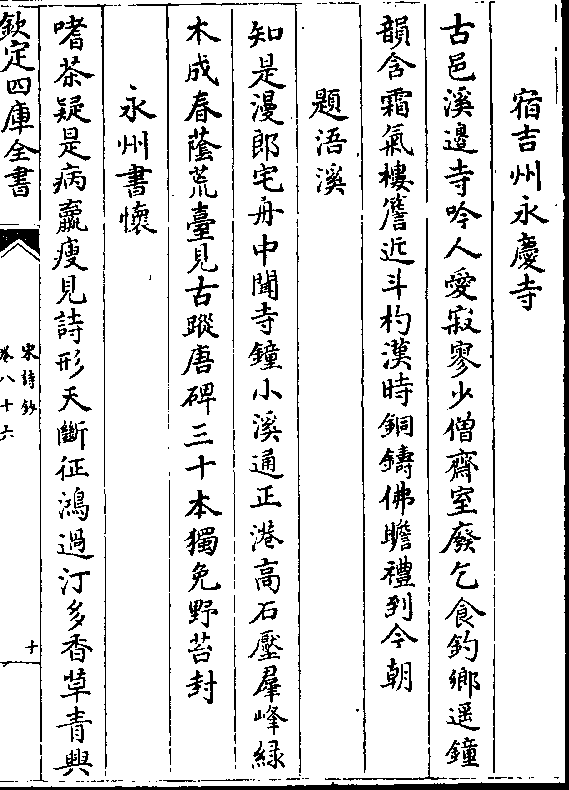 宿吉州永慶寺
古邑溪邉寺吟人愛寂寥少僧齋室廢乞食釣鄉遥鐘
韻含霜氣樓簷近斗杓漢時銅鑄佛瞻禮到今朝
題浯溪
知是漫郎宅舟中聞寺鐘小溪通正港高石壓羣峰緑
木成春蔭荒臺見古蹤唐碑三十本獨免野苔封
永州書懷
嗜茶疑是病羸瘦見詩形天斷征鴻過汀多香草青興
欽定四庫全書
宋詩鈔
卷八十六
十